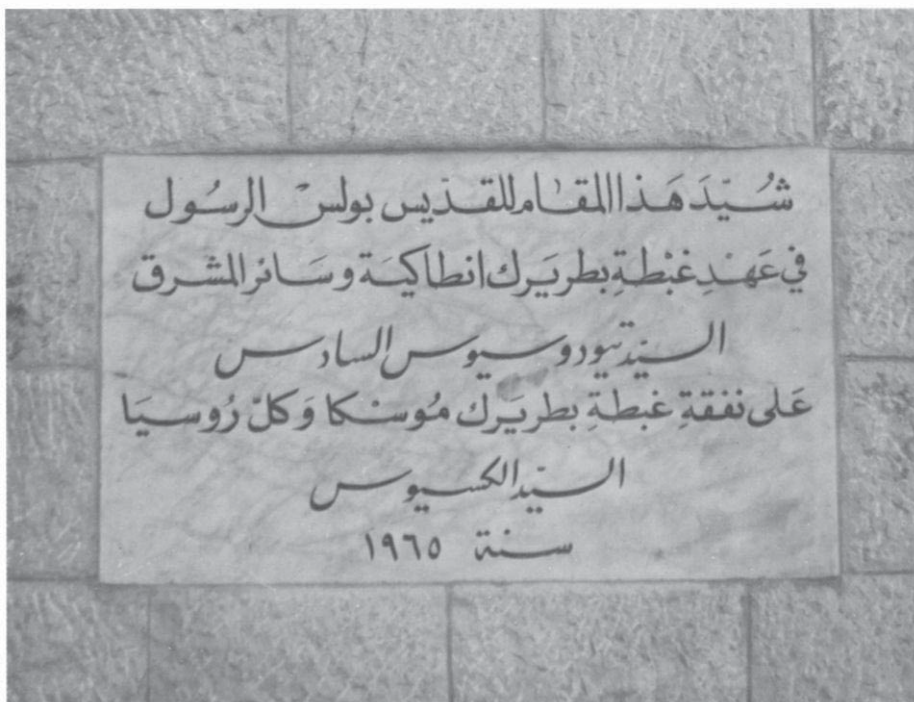 شُيّدَ هَذا المقام للقدّيس بولس الرسُول
في عَهْدِ غبْطةِ بطريَرك انطاكيَة وسَائر المشرق
السيّد تيودوسيوس السادس
عَلى نفقةِ غبطةِ بطريَرك مُوسْكا وَكلّ رُوسيَا
السيّد الكسيوس
سنة ١٩٦٥